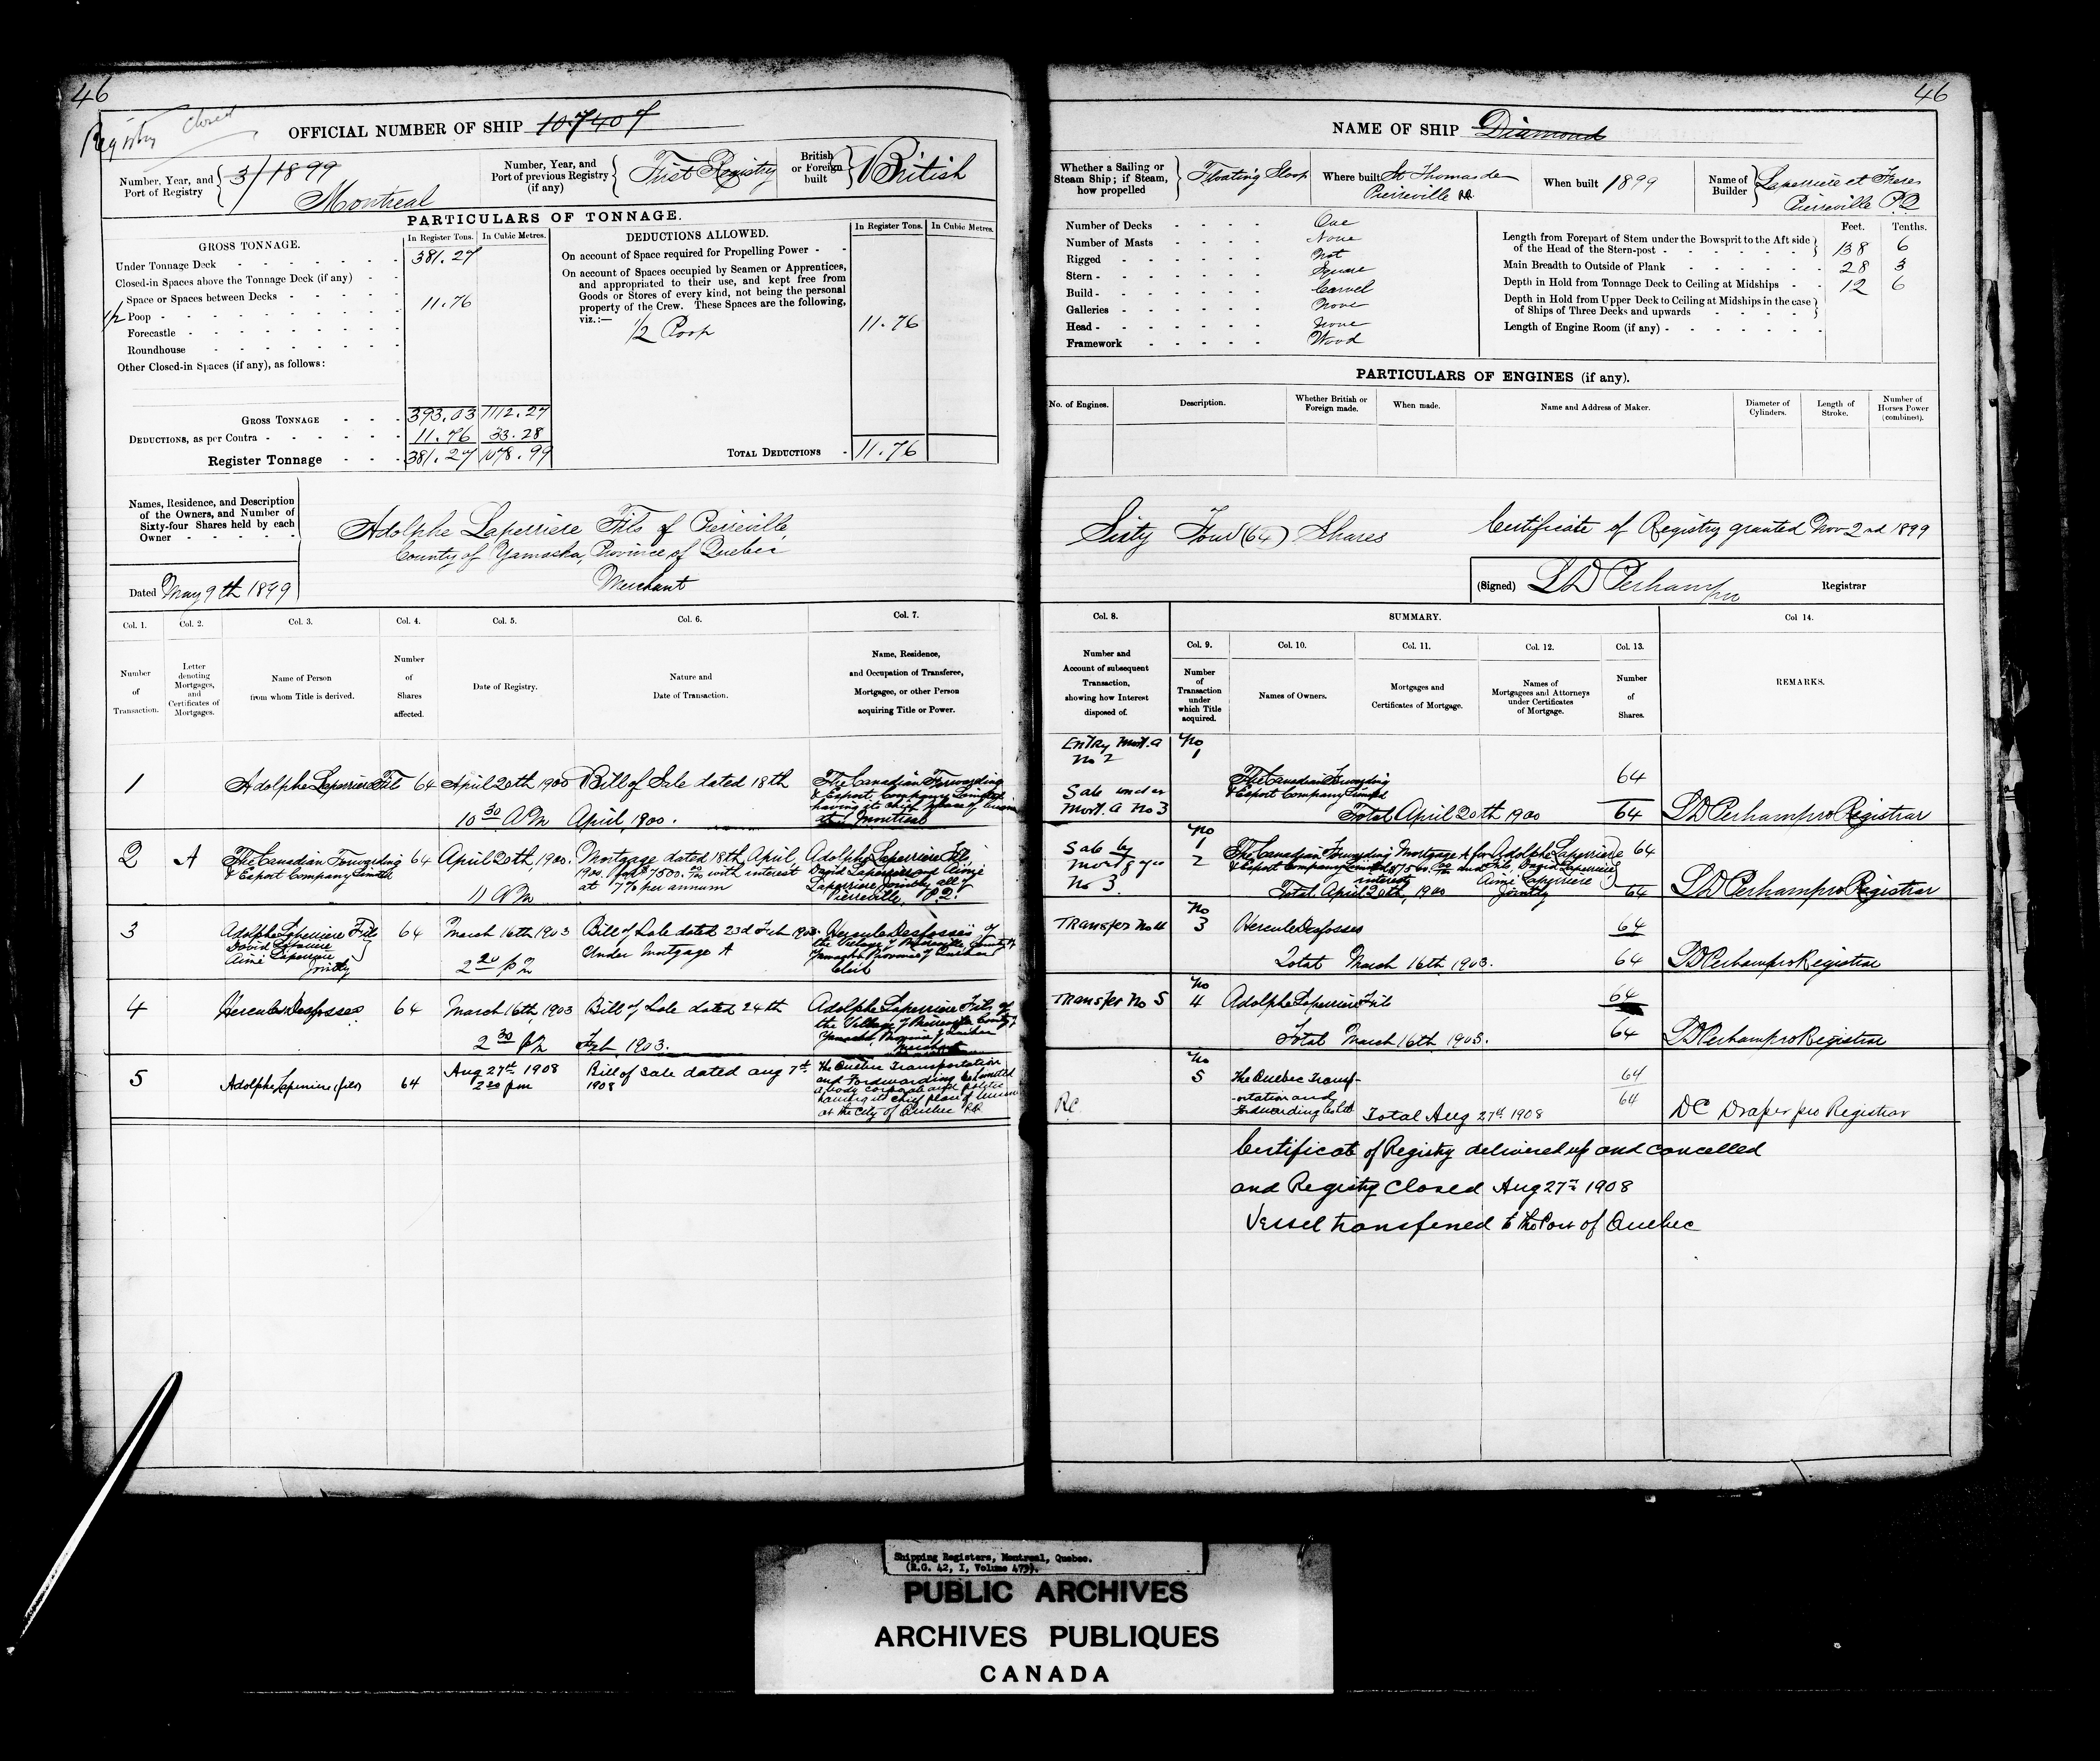 46
Registry closed
OFFICIAL NUMBER OF SHIP 107407
Number, Year, and Port of Registry 3/1899 Montreal
Number, Year, and Port of previous Registry (if any) First Registry
British or Foreign built British
PARTICULARS OF TONNAGE.
GROSS TONNAGE.
In Register Tons. In Cubic Metres.
Under Tonnage Deck 381.27
Closed-in Spaces above the Tonnage Deck (if any)
Space or Spaces between Decks
1/2 Poop 11.76
Forecastle
Roundhouse
Other Closed-in Spaces (if any), as follows:
GROSS TONNAGE 393.03 1112.27
DEDUCTIONS, as per Contra 11.76 33.28
Register Tonnage 381.27 1078.99
DEDUCTIONS ALLOWED.
In Register Tons. In Cubic Metres.
On account of Space required for Propelling Power
On account of Spaces occupied by Seamen or Apprentices,
and appropriated to their use, and kept free from
Goods or Stores of every kind, not being the personal
property of the Crew. These Spaces are the following,
viz.:—
1/2 Poop 11.76
TOTAL DEDUCTIONS 11.76
Names, Residence, and Description
of the Owners, and Number of
Sixty-four Shares held by each
Owner
Adolphe Laperriere Fils of Pierreville,
County of Yamaska, Province of Quebec
Merchant
Dated May 9th 1899
Col. 1. Col. 2. Col. 3. Col. 4. Col. 5. Col. 6. Col. 7.
Number of Transaction.
Letter denoting Mortgages, and Certificates of Mortgages.
Name of Person from whom Title is derived.
Number of Shares affected.
Date of Registry.
Nature and Date of Transaction.
Name, Residence, and Occupation of Transferee, Mortgagee, or other Person acquiring Title or Power.
1 Adolphe Laperriere Fils 64 April 20th 1900 Bill of Sale dated 18th The Canadian Forwarding
& Export Company Limited
having its chief place of
10 30 AM April, 1900. at Montreal
2 A The Canadian Forwarding 64 April 20th, 1900. Mortgage dated 18th April, Adolphe Laperriere Fils,
& Export Company Limited 1900, for $7500.00 with interest David Laperriere and Aimé
at 7% per annum Laperriere Jointly all of
11 AM Pierreville, P.Q.
3 Adolphe Laperriere Fils 64 March 16th 1903 Bill of Sale dated 23d Feb 1903. Hercule Desfosses of
David Laperriere Under Mortgage A the Village of Pierreville, County of
Aimé Laperriere Yamaska Province of Quebec
Jointly 2 20 PM
4 Hercule Desfosses 64 March 16th, 1903 Bill of Sale dated 24th Adolphe Laperriere Fils of
the Village of Pierreville County of
Yamaska, Province of Quebec
2 30 PM Feb. 1903. Merchant
5 Adolphe Laperriere (fils) 64 Aug 27th 1908 Bill of Sale dated Aug 7th The Quebec Transportation
2 30 pm 1908 and Forwarding Co Limited
a body corporate and politic
having its chief place of
at the City of Quebec P.Q.
46
NAME OF SHIP Diamond
Whether a Sailing or Steam Ship; if Steam, how propelled Floating Sloop
Where built St Thomas de Pierreville P.Q.
When built 1899
Name of Builder Laperriere et Freres Pierreville P.Q
Number of Decks One
Number of Masts None
Rigged Not
Stern Square
Build Carvel
Galleries None
Head None
Framework Wood
Feet. Tenths.
Length from Forepart of Stem under the Bowsprit to the Aft side
of the Head of the Stern-post 138 6
Main Breadth to Outside of Plank 28 3
Depth in Hold from Tonnage Deck to Ceiling at Midships 12 6
Depth in Hold from Upper Deck to Ceiling at Midships in the case
of Ships of Three Decks and upwards
Length of Engine Room (if any)
PARTICULARS OF ENGINES (if any).
No. of Engines. Description. Whether British or Foreign made. When made. Name and Address of Maker. Diameter of Cylinders. Length of Stroke. Number of Horses Power (combined).
Sixty Four (64) Shares
Certificate of Registry granted Nov 2nd 1899
(Signed) LD Perham pro Registrar
Col. 8. SUMMARY. Col 14.
Col. 9. Col. 10. Col. 11. Col. 12. Col. 13.
Number and Account of subsequent Transaction, showing how Interest disposed of.
Number of Transaction under which Title acquired.
Names of Owners.
Mortgages and Certificates of Mortgage.
Names of Mortgagees and Attorneys under Certificates of Mortgage.
Number of Shares.
REMARKS.
Entry Mort. A No 2 No 1
The Canadian Forwarding 64
& Export Company Limited
Sale under Mort. A No 3 Total April 20th 1900 64 LD Perham pro Registrar
Sale by Mortgagee No 3 No 1 2
The Canadian Forwarding Mortgage A for Adolphe Laperriere 64
& Export Company Limited $7500.00 and Fils, David Laperriere
interest Aimé Laperriere
Total April 20th, 1900 Jointly 64 LD Perham pro Registrar
Transfer No 4 No 3 Hercule Desfosses 64
Total March 16th, 1903. 64 LD Perham pro Registrar
Transfer No 5 No 4 Adolphe Laperriere Fils 64
Total March 16th, 1903. 64 LD Perham pro Registrar
RC No 5 The Quebec Transp- 64
ortation and
Forwarding Co Ltd Total Aug 27th 1908 64 DC Draper pro Registrar
Certificate of Registry delivered up and cancelled
and Registry closed Aug 27th 1908
Vessel transferred to the Port of Quebec
Shipping Registers, Montreal, Quebec.
(R.G. 42, I, Volume 475).
PUBLIC ARCHIVES
ARCHIVES PUBLIQUES
CANADA